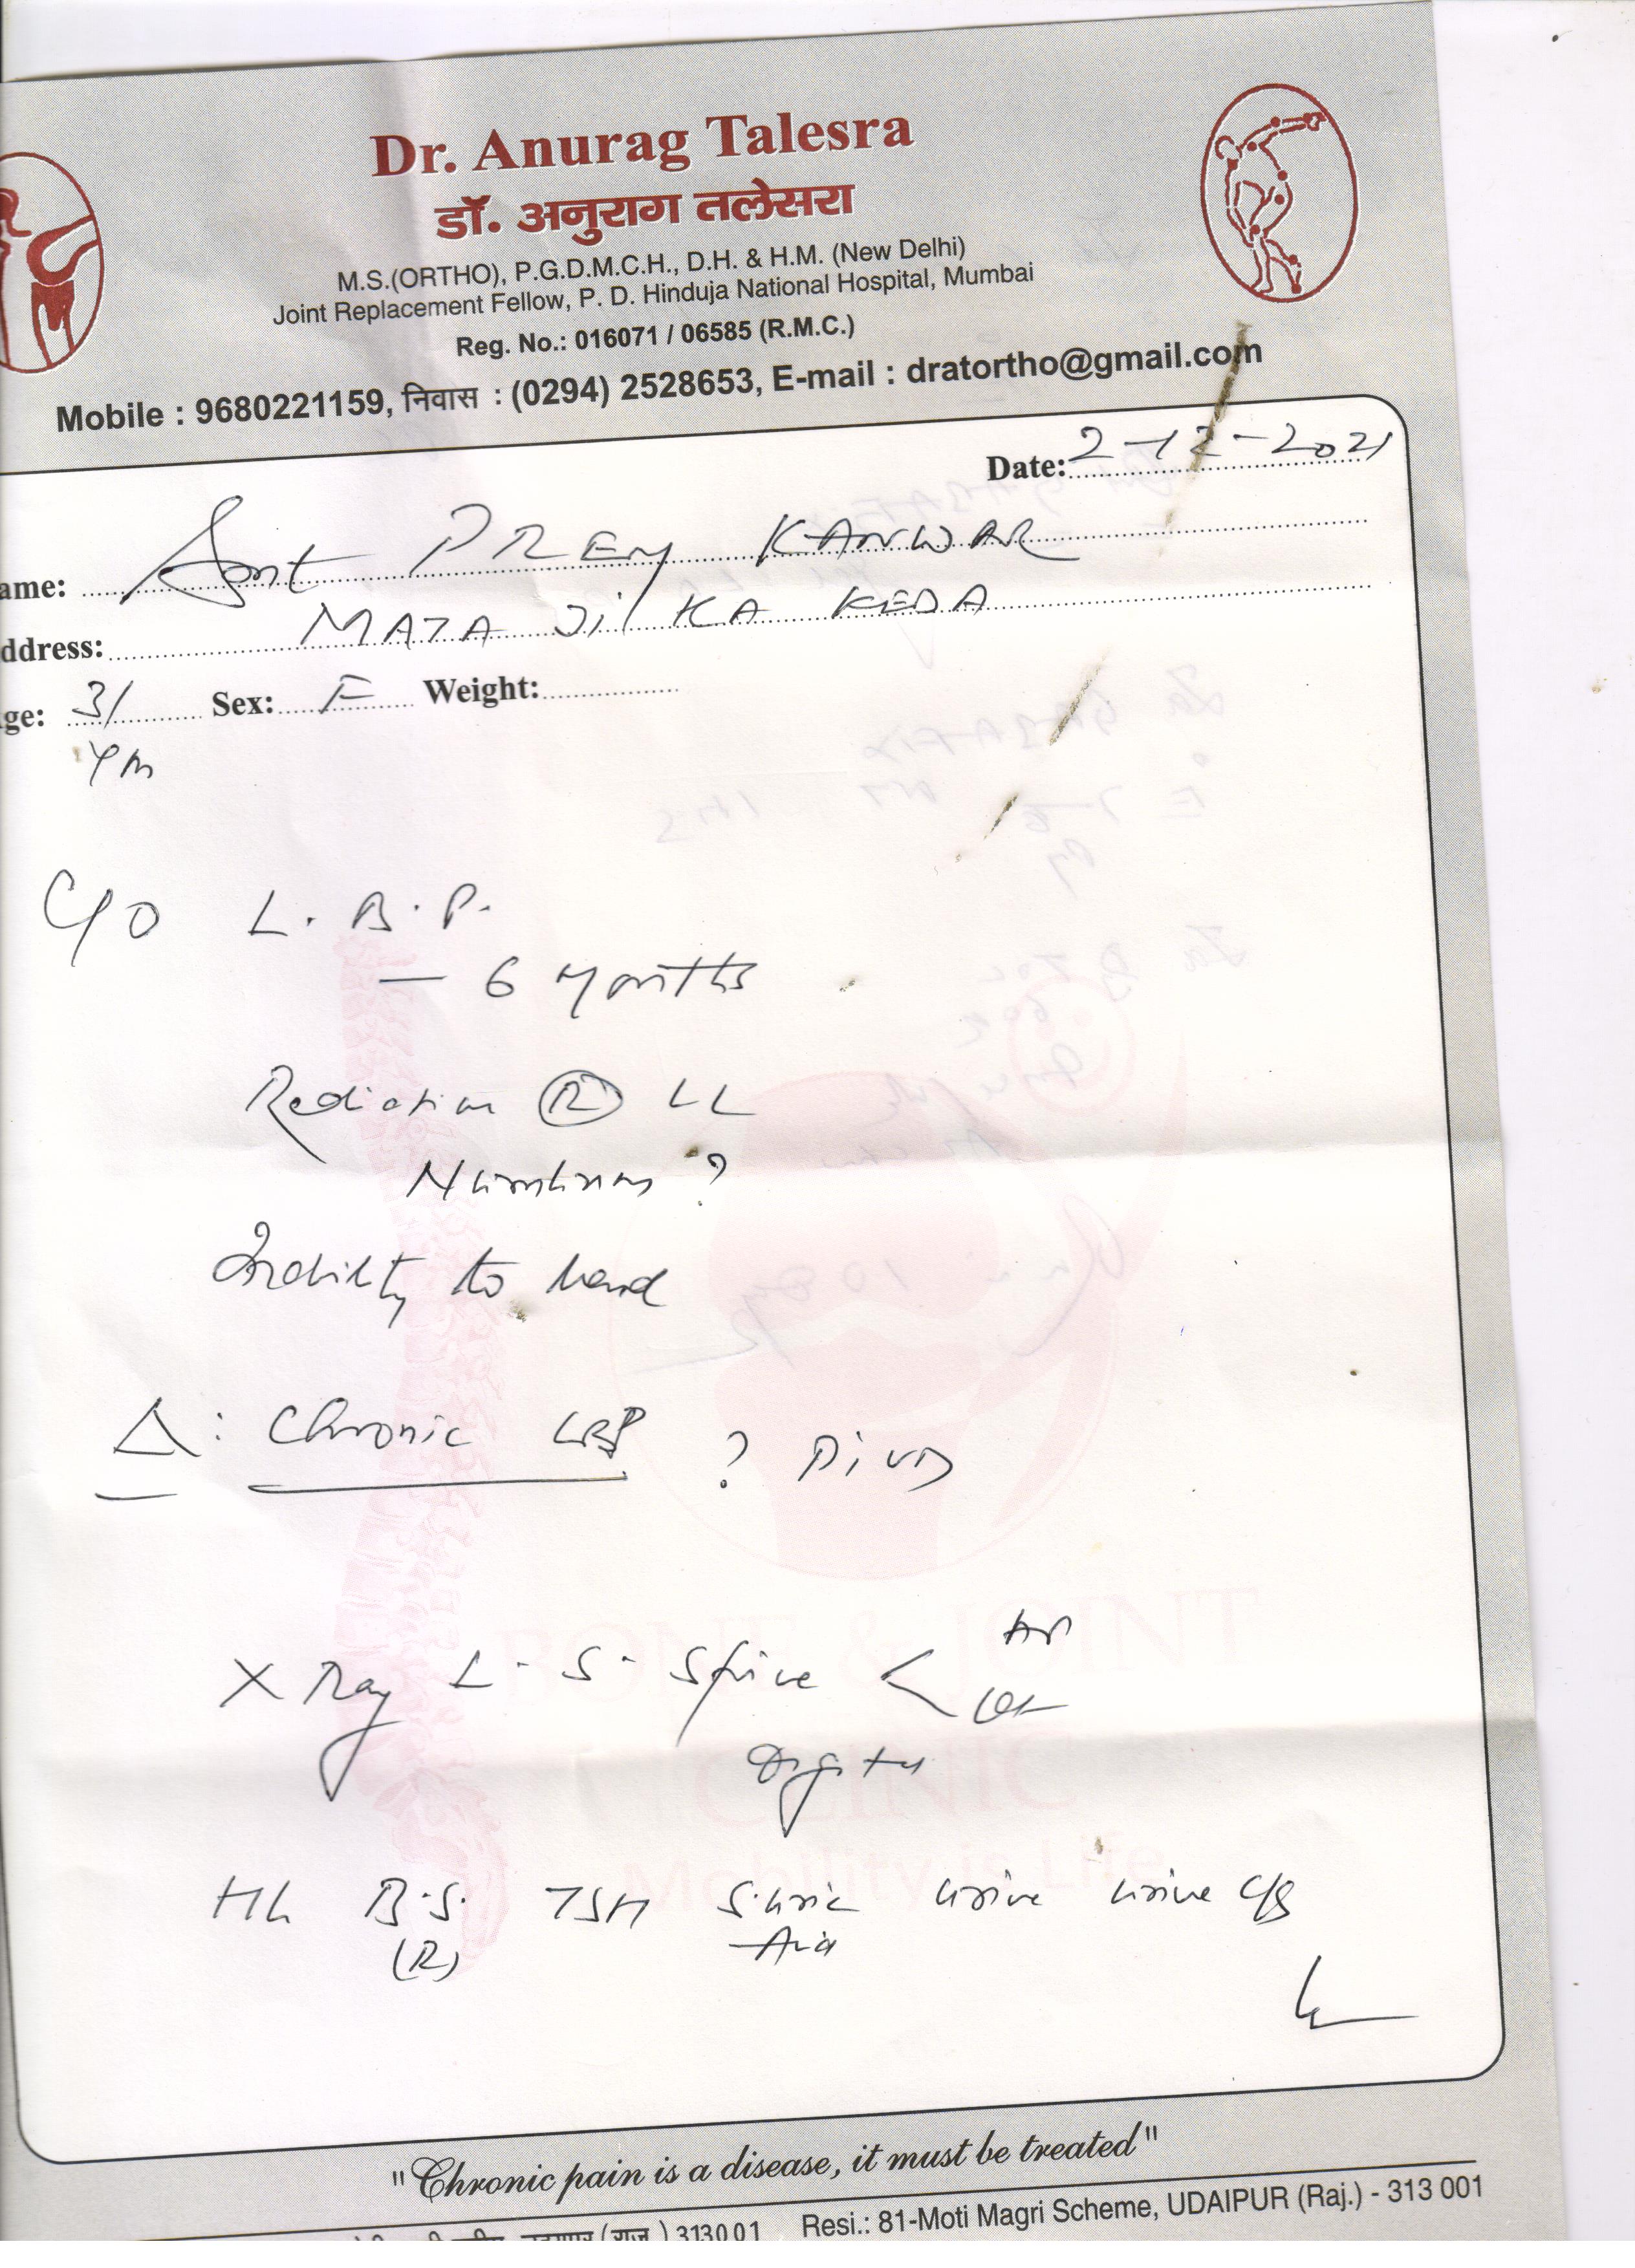 Dr. Anurag Talesra
डॉ. अनुराग तलेसरा
M.S.(ORTHO), P.G.D.M.C.H., D.H. & H.M. (New Delhi)
Joint Replacement Fellow, P. D. Hinduja National Hospital, Mumbai
Reg. No.: 016071 / 06585 (R.M.C.)
Mobile : 9680221159, निवास : (0294) 2528653, E-mail : dratortho@gmail.com
Date: 2-12-2021
ame: Smt PREM KANWAR
ddress: MATA Ji KA KEDA
ge: 31 Sex: F Weight:
C/O L.B.P.
— 6 Months
Radiation (R) LL
Numbness ?
Inability to bend
Δ: Chronic LBP ? PIVD
X Ray L.S. Spine < AP
Lat
Digital
Hb B.S. TSH S.Uric Urine Urine C/S
(R) Acid
BONE & JOINT
CLINIC
Mobility is Life
"Chronic pain is a disease, it must be treated"
(राज.) 313001 Resi.: 81-Moti Magri Scheme, UDAIPUR (Raj.) - 313 001